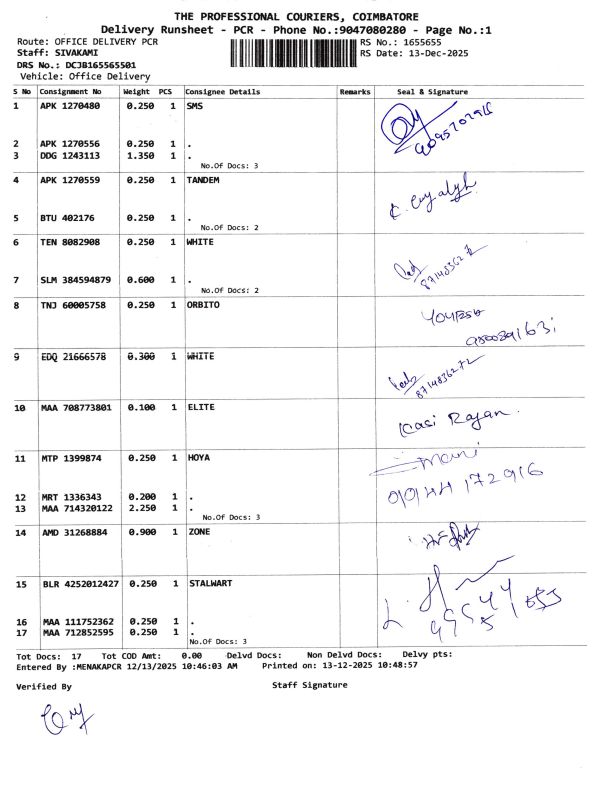 THE PROFESSIONAL COURIERS, COIMBATORE
Delivery Runsheet - PCR - Phone No.:9047080280 - Page No.:1
Route: OFFICE DELIVERY PCR RS No.: 1655655
Staff: SIVAKAMI RS Date: 13-Dec-2025
DRS No.: DCJB165565501
Vehicle: Office Delivery
S No Consignment No Weight PCS Consignee Details Remarks Seal & Signature
1 APK 1270480 0.250 1 SMS
2 APK 1270556 0.250 1 .
3 DDG 1243113 1.350 1 .
No.Of Docs: 3
4 APK 1270559 0.250 1 TANDEM
5 BTU 402176 0.250 1 .
No.Of Docs: 2
6 TEN 8082908 0.250 1 WHITE
8714836272
7 SLM 384594879 0.600 1 .
No.Of Docs: 2
8 TNJ 60005758 0.250 1 ORBITO
9 EDQ 21666578 0.300 1 WHITE
8714836272
10 MAA 708773801 0.100 1 ELITE
Kasi Rajan.
11 MTP 1399874 0.250 1 HOYA
Mani
12 MRT 1336343 0.200 1 .
13 MAA 714320122 2.250 1 .
No.Of Docs: 3
14 AMD 31268884 0.900 1 ZONE
15 BLR 4252012427 0.250 1 STALWART
16 MAA 111752362 0.250 1 .
17 MAA 712852595 0.250 1 .
No.Of Docs: 3
Tot Docs: 17 Tot COD Amt: 0.00 Delvd Docs: Non Delvd Docs: Delvy pts:
Entered By :MENAKAPCR 12/13/2025 10:46:03 AM Printed on: 13-12-2025 10:48:57
Verified By Staff Signature